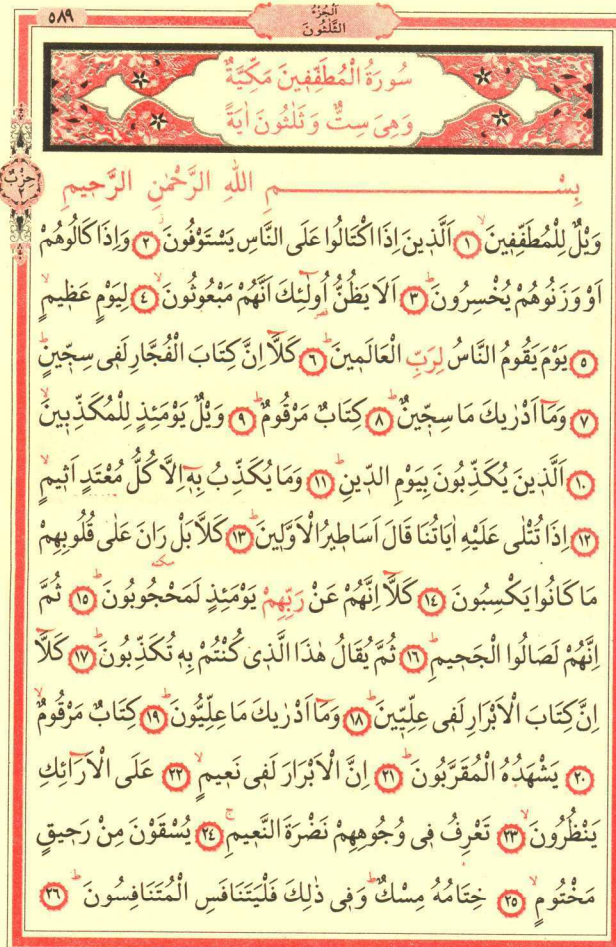 ٥٨٩
اَلْجُزْءُ
الثَّلٰثُونَ
سُورَةُ الْمُطَفِّفٖينَ مَكِّيَّةٌ
وَهِىَ سِتٌّ وَثَلٰثُونَ اٰيَةً
حِزْبٌ
٢
بِسْــــــــــــمِ اللهِ الرَّحْمٰنِ الرَّحٖيمِ
وَيْلٌ لِلْمُطَفِّفٖينَۙ ١ اَلَّذٖينَ اِذَا اكْتَالُوا عَلَى النَّاسِ يَسْتَوْفُونَۘ ٢ وَاِذَا كَالُوهُمْ
اَوْ وَزَنُوهُمْ يُخْسِرُونَۜ ٣ اَلَا يَظُنُّ اُولٰٓئِكَ اَنَّهُمْ مَبْعُوثُونَۙ ٤ لِيَوْمٍ عَظٖيمٍۙ
٥ يَوْمَ يَقُومُ النَّاسُ لِرَبِّ الْعَالَمٖينَۜ ٦ كَلَّٓا اِنَّ كِتَابَ الْفُجَّارِ لَفٖى سِجّٖينٍۜ
٧ وَمَٓا اَدْرٰيكَ مَا سِجّٖينٌۜ ٨ كِتَابٌ مَرْقُومٌۜ ٩ وَيْلٌ يَوْمَئِذٍ لِلْمُكَذِّبٖينَۙ
١٠ اَلَّذٖينَ يُكَذِّبُونَ بِيَوْمِ الدّٖينِۜ ١١ وَمَا يُكَذِّبُ بِهٖٓ اِلَّا كُلُّ مُعْتَدٍ اَثٖيمٍۙ
١٢ اِذَا تُتْلٰى عَلَيْهِ اٰيَاتُنَا قَالَ اَسَاطٖيرُ الْاَوَّلٖينَۜ ١٣ كَلَّا بَلْ رَانَ عَلٰى قُلُوبِهِمْ
مَا كَانُوا يَكْسِبُونَ ١٤ كَلَّٓا اِنَّهُمْ عَنْ رَبِّهِمْ يَوْمَئِذٍ لَمَحْجُوبُونَۜ ١٥ ثُمَّ
اِنَّهُمْ لَصَالُوا الْجَحٖيمِۜ ١٦ ثُمَّ يُقَالُ هٰذَا الَّذٖى كُنْتُمْ بِهٖ تُكَذِّبُونَۜ ١٧ كَلَّٓا
اِنَّ كِتَابَ الْاَبْرَارِ لَفٖى عِلِّيّٖينَۜ ١٨ وَمَٓا اَدْرٰيكَ مَا عِلِّيُّونَۜ ١٩ كِتَابٌ مَرْقُومٌۙ
٢٠ يَشْهَدُهُ الْمُقَرَّبُونَۜ ٢١ اِنَّ الْاَبْرَارَ لَفٖى نَعٖيمٍۙ ٢٢ عَلَى الْاَرَٓائِكِ
يَنْظُرُونَۙ ٢٣ تَعْرِفُ فٖى وُجُوهِهِمْ نَضْرَةَ النَّعٖيمِۚ ٢٤ يُسْقَوْنَ مِنْ رَحٖيقٍ
مَخْتُومٍۙ ٢٥ خِتَامُهُ مِسْكٌۜ وَفٖى ذٰلِكَ فَلْيَتَنَافَسِ الْمُتَنَافِسُونَۜ ٢٦